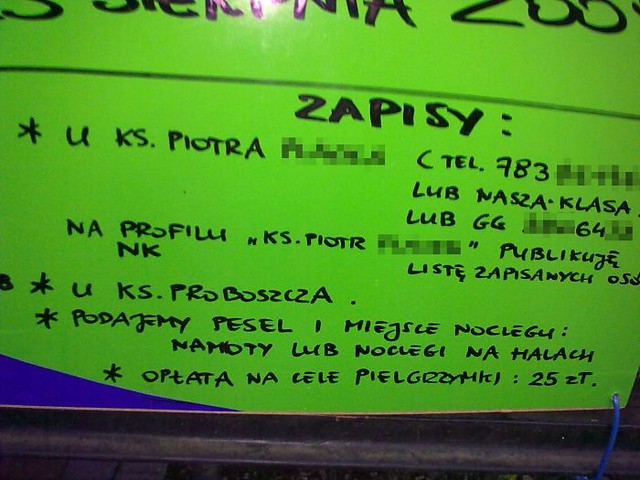 SIERPNIA 200
ZAPISY:
* U KS. PIOTRA (TEL. 783
LUB NASZA-KLASA
LUB GG 64
NA PROFILU „KS. PIOTR " PUBLIKUJĘ
NK LISTĘ ZAPISANYCH
* U KS. PROBOSZCZA.
* PODAJEMY PESEL I MIEJSCE NOCLEGU:
NAMIOTY LUB NOCLEGI NA HALACH
* OPŁATA NA CELE PIELGRZYMKI: 25 ZŁ.